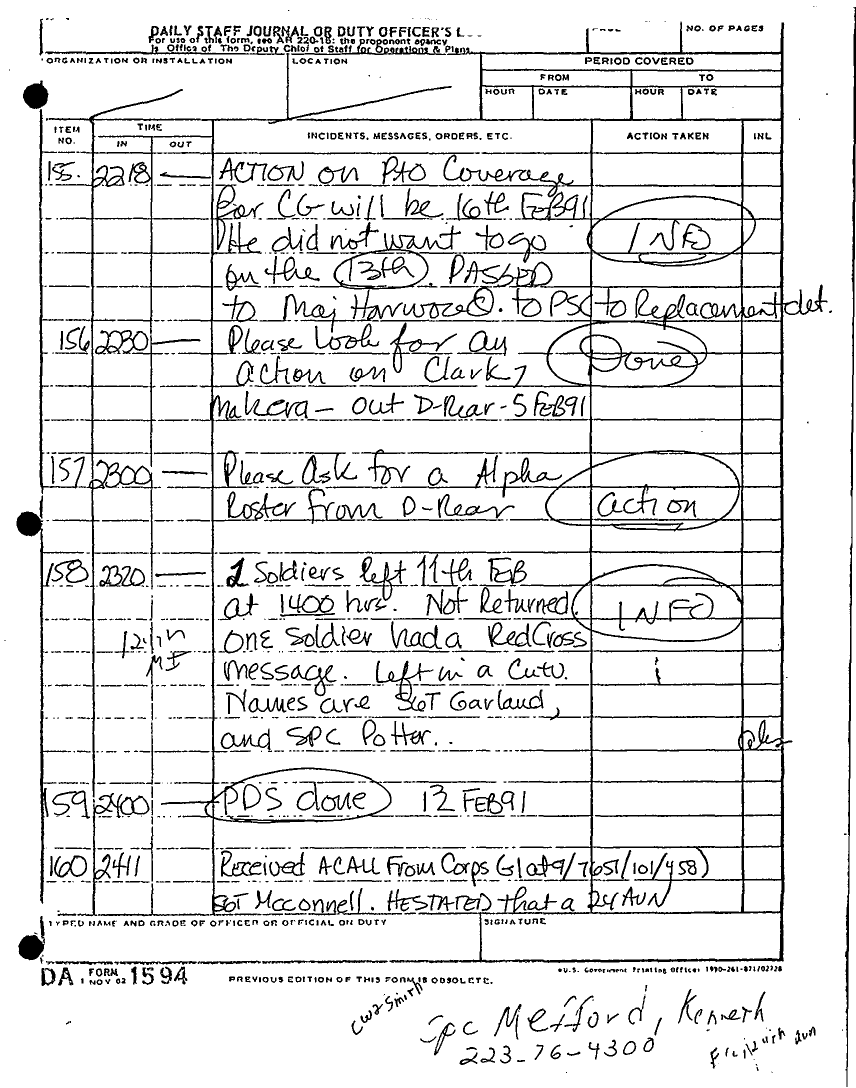 DAILY STAFF JOURNAL OR DUTY OFFICER'S L
For use of this form, see AR 220-15; the proponent agency
is Office of The Deputy Chief of Staff for Operations & Plans
NO. OF PAGES
ORGANIZATION OR INSTALLATION
LOCATION
PERIOD COVERED
FROM
TO
HOUR
DATE
HOUR
DATE
ITEM NO.
TIME
IN
OUT
INCIDENTS, MESSAGES, ORDERS, ETC.
ACTION TAKEN
INL
155. 2218 — ACTION on PAO Coverage
for CG will be 16th FEB91
He did not want to go INFO
on the 13th. PASSED
to Maj Harwood. to PSC to Replacement det.
156 2230 — Please Look for an Done
action on Clark,
out D-Rear - 5 FEB91
157 2300 — Please Ask for a Alpha
Roster from D-Rear action
158 2320 — 2 Soldiers left 11th FEB
at 1400 hrs. Not Returned. INFO
One Soldier had a RedCross
message. Left in a Cutv.
Names are SGT Garland,
and SPC Potter..
159 2400 — PDS done 12 FEB91
160 2411 Received A CALL From Corps G1 at 9/7651/101/458)
SGT Mcconnell. HE STATED that a 24
TYPED NAME AND GRADE OF OFFICER OR OFFICIAL ON DUTY
SIGNATURE
DA FORM 1 NOV 62 1594
PREVIOUS EDITION OF THIS FORM IS OBSOLETE.
*U.S. Government Printing Office: 1990-261-871/02728
CW2 Smith
Spc Mefford, Kenneth
223-76-4300